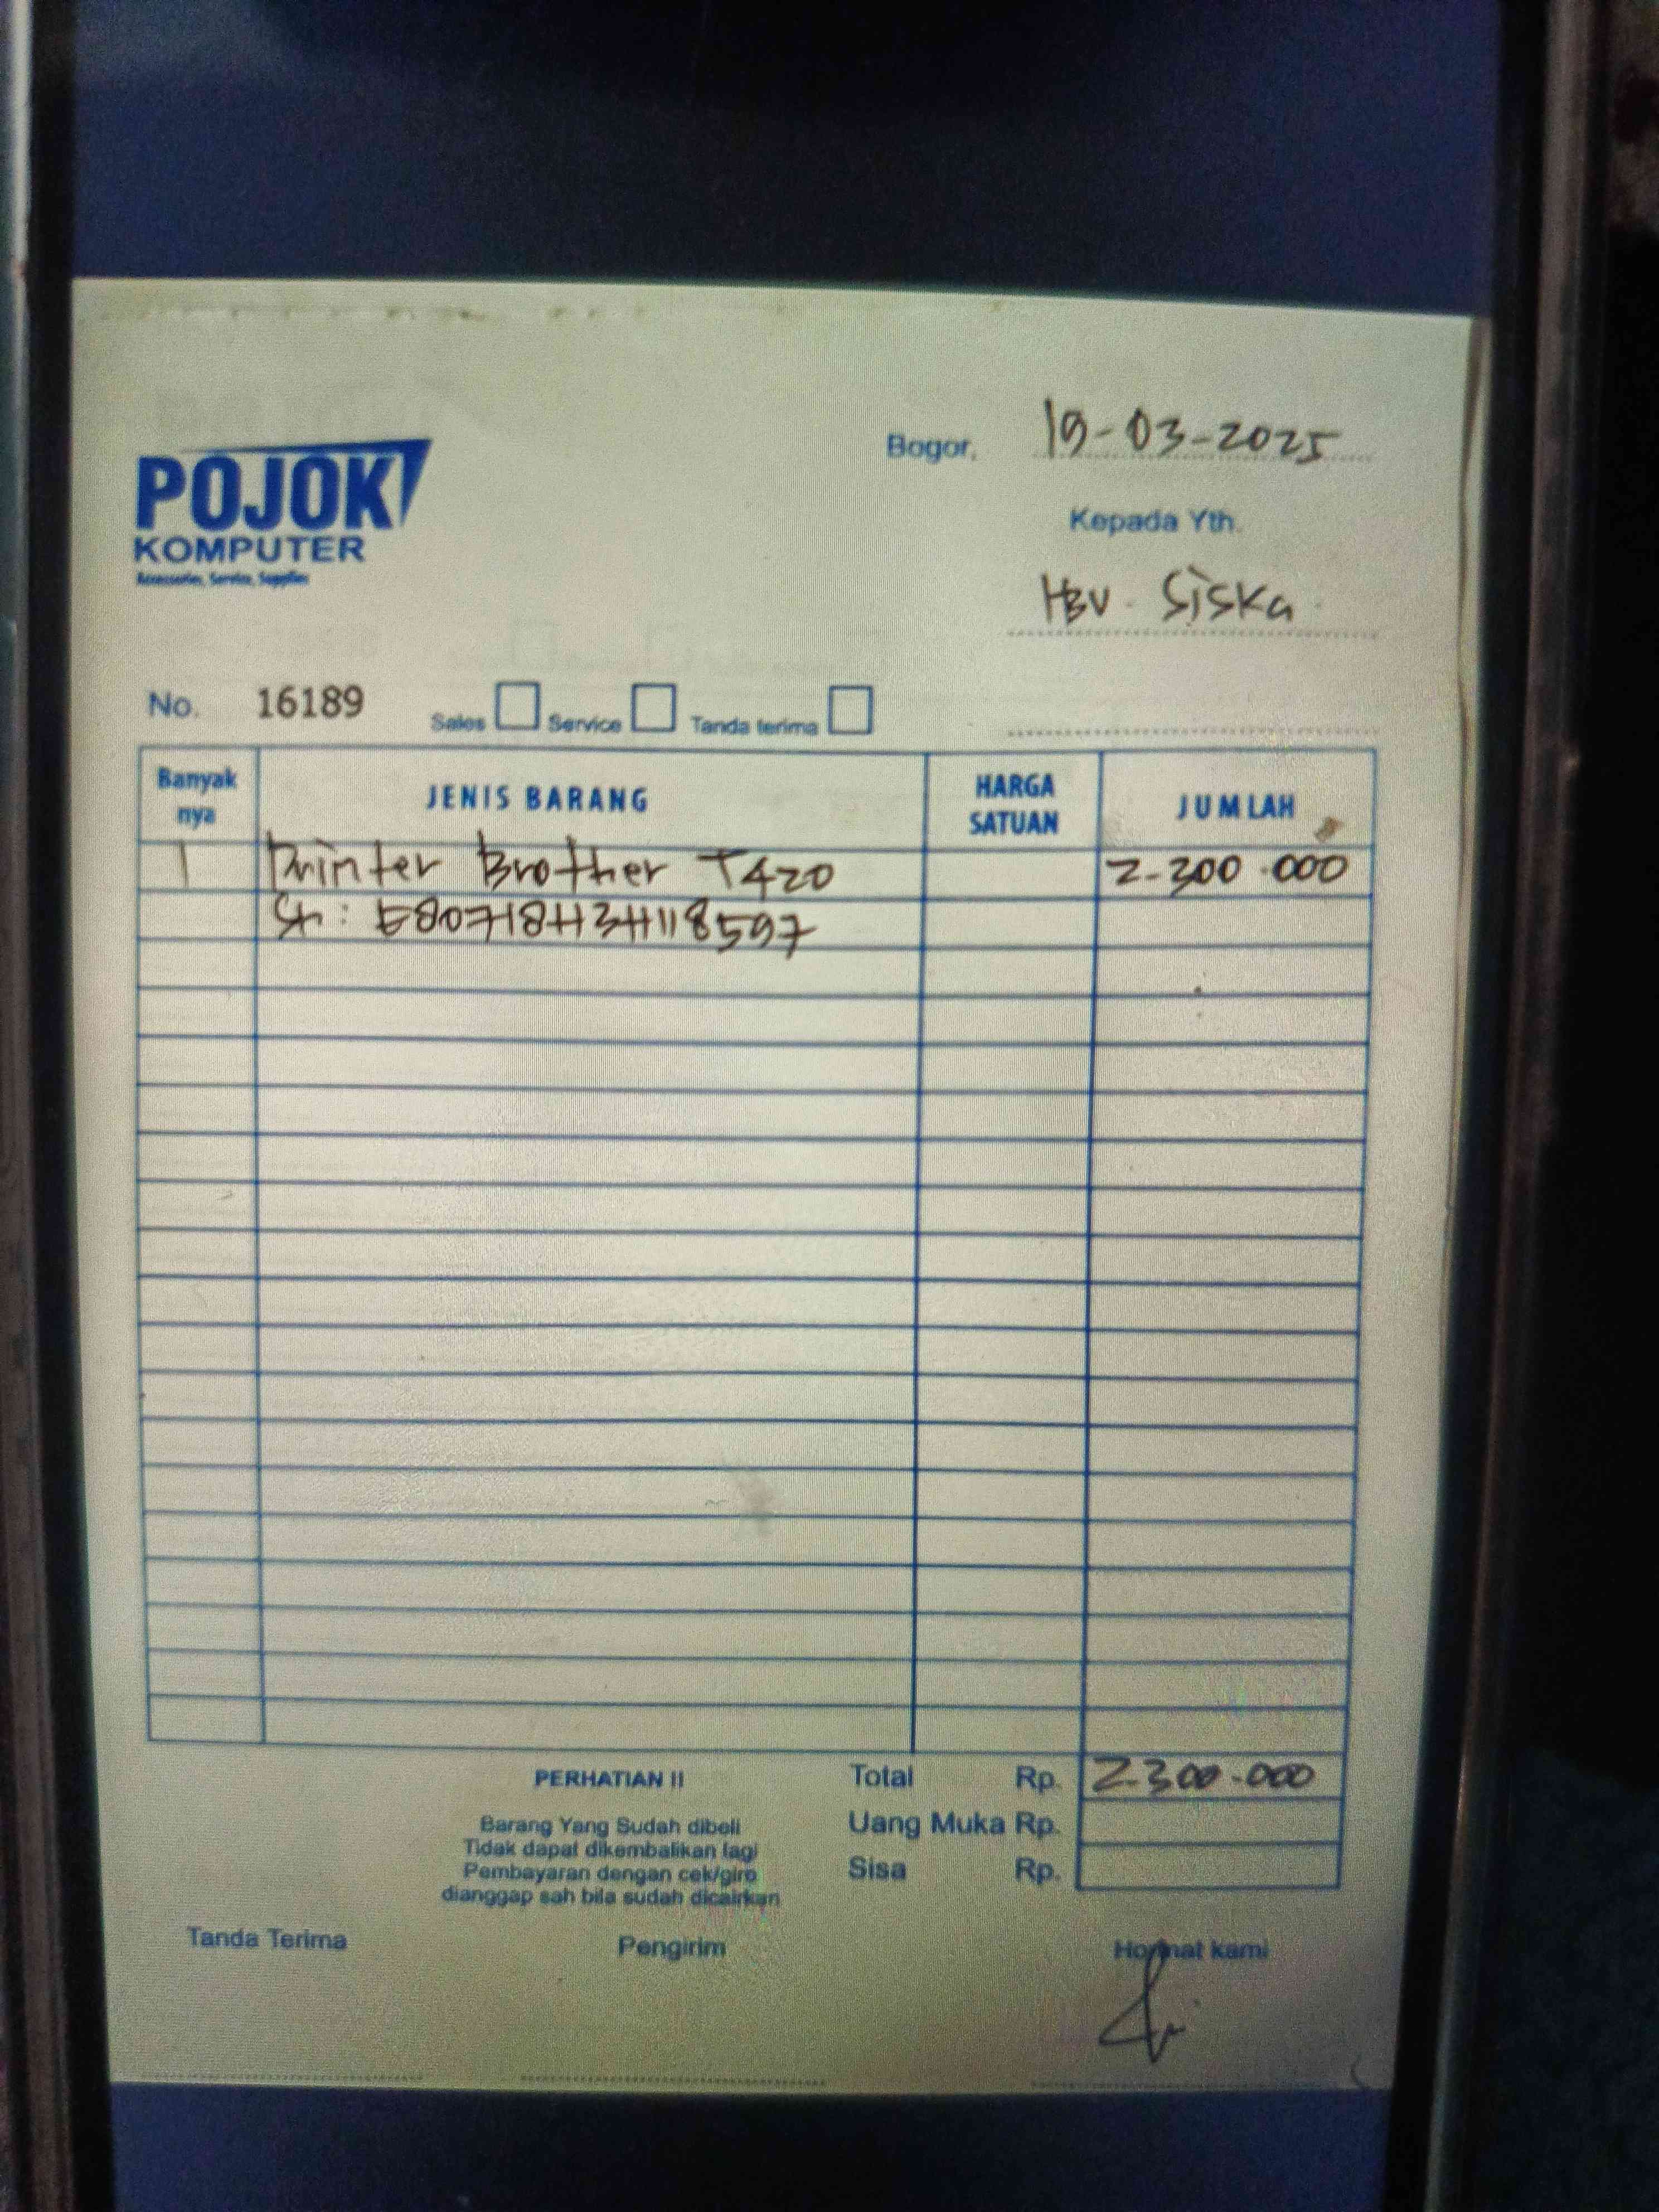 Bogor, 19-03-2025
POJOK
KOMPUTER
Accessories, Service, Supplies
Kepada Yth.
Siska
No. 16189 Sales Service Tanda terima
Banyak nya JENIS BARANG HARGA SATUAN JUMLAH
1 Printer Brother T420 2.300.000
SN :
Total Rp. 2.300.000
Uang Muka Rp.
Sisa Rp.
PERHATIAN !!
Barang Yang Sudah dibeli
Tidak dapat dikembalikan lagi
Pembayaran dengan cek/giro
dianggap sah bila sudah dicairkan
Tanda Terima Pengirim Hormat kami